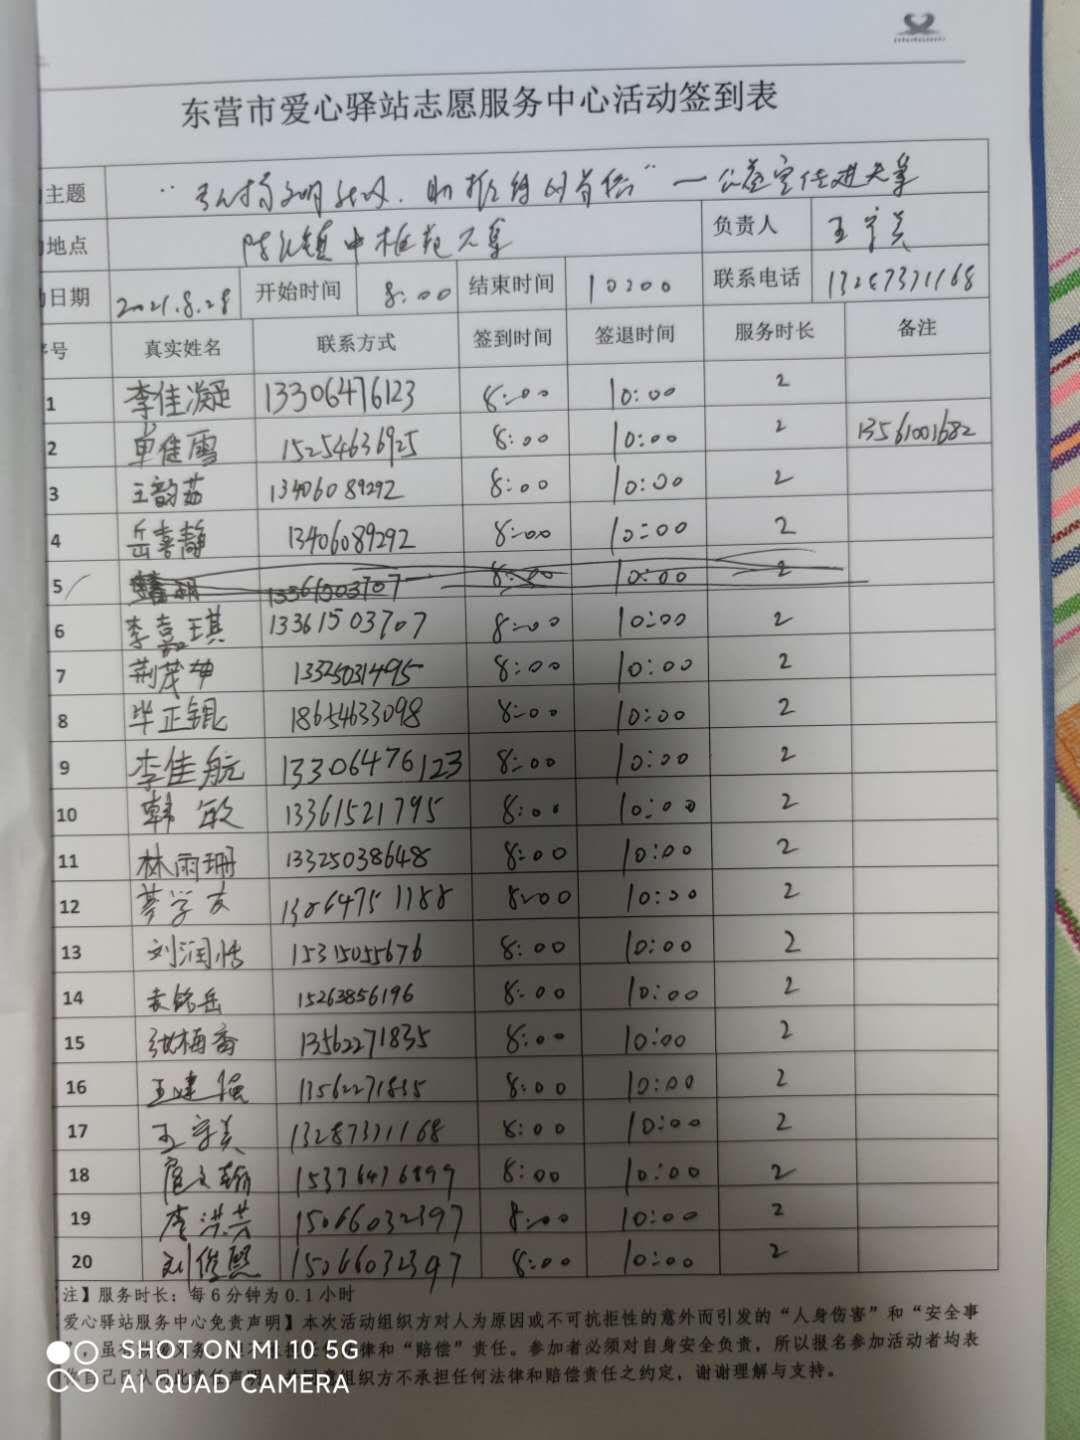 东营市爱心驿站志愿服务中心活动签到表
主题
地点 负责人 王字美
日期 2021.8.28 开始时间 8:00 结束时间 10:00 联系电话 13287371168
序号 真实姓名 联系方式 签到时间 签退时间 服务时长 备注
1 李佳凝 13306476123 8:00 10:00 2
2 单佳雪 15254636925 8:00 10:00 2 13561001682
3 王韵茹 13406089292 8:00 10:00 2
4 岳喜静 13406089292 8:00 10:00 2
5 13361503707 8:00 10:00 2
6 李嘉琪 13361503707 8:00 10:00 2
7 荆茂坤 13325031495 8:00 10:00 2
8 毕正锟 18654633098 8:00 10:00 2
9 李佳航 13306476123 8:00 10:00 2
10 韩敏 13361521795 8:00 10:00 2
11 林雨珊 13325038648 8:00 10:00 2
12 8:00 10:00 2
13 刘润恬 15315055676 8:00 10:00 2
14 袁铭岳 15263856196 8:00 10:00 2
15 张梅香 13562271835 8:00 10:00 2
16 王建强 13562271835 8:00 10:00 2
17 13287371168 8:00 10:00 2
18 8:00 10:00 2
19 李洪芸 15066032397 8:00 10:00 2
20 刘俊熙 15066032397 8:00 10:00 2
注】服务时长：每6分钟为0.1小时
爱心驿站服务中心免责声明】本次活动组织方对人为原因或不可抗拒性的意外而引发的“人身伤害”和“安全事
律和“赔偿”责任。参加者必须对自身安全负责，所以报名参加活动者均表
组织方不承担任何法律和赔偿责任之约定，谢谢理解与支持。
SHOT ON MI 10 5G
AI QUAD CAMERA